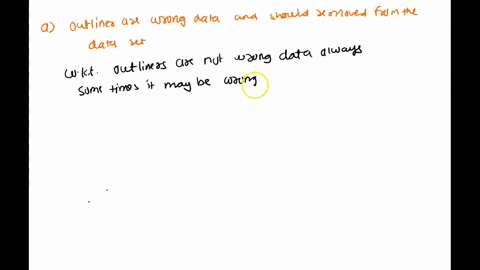 a) outliner are wrong data and should removed from the
data set
w.k.t. outliners are not wrong data always
some times it may be wrong